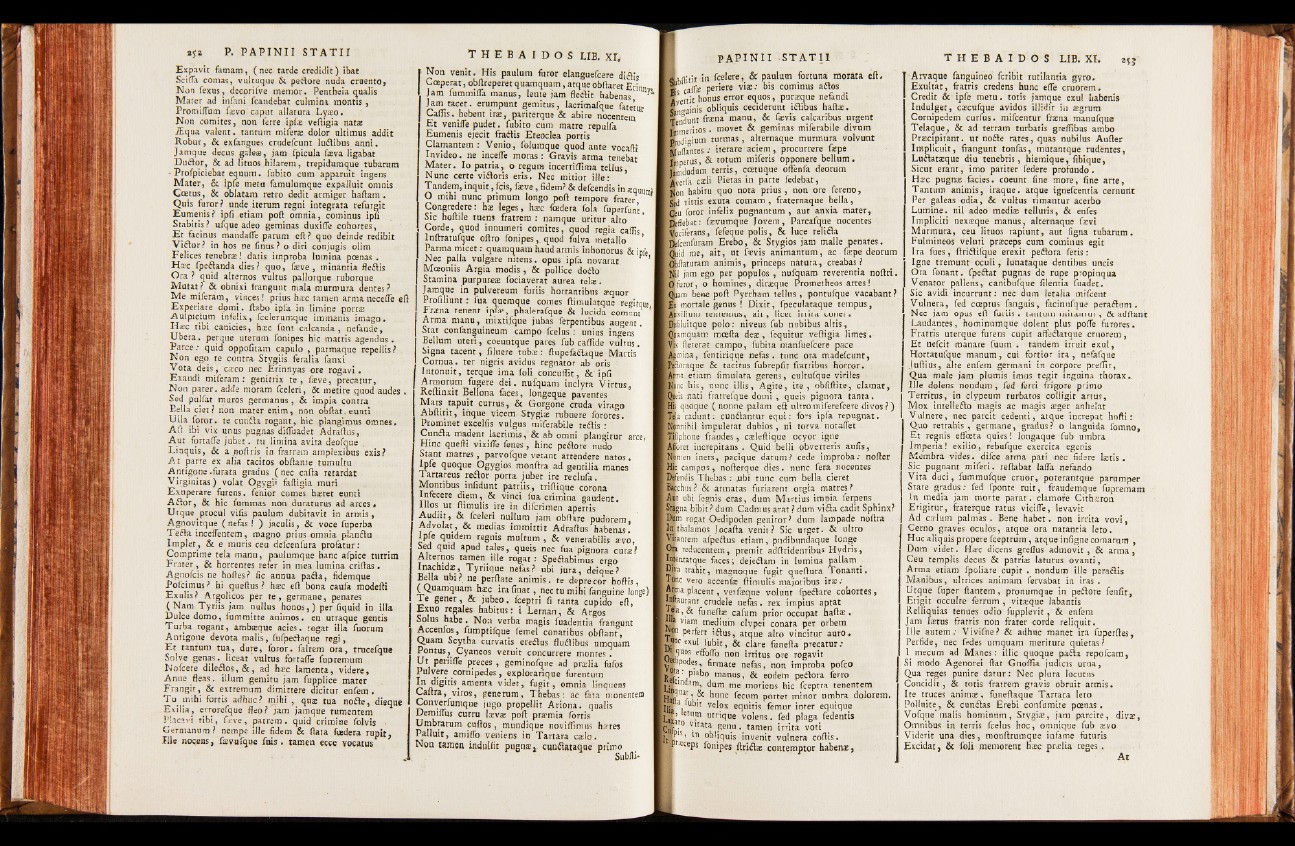 252 P. PAPINII STATII
Expavit famam, (nec tarde credidit) ibat
Scissa comas, vultuque & pectore nuda cruento,
Non sexus, decorisve memor. Pentheia qualis
Mater ad insani scandebat culmina montis,
Promissum sævo caput allatura Lyæo.
Non comites, non ferre ipsæ vestigia natæ
Æqua valent. tantum miseræ dolor ultimus addit
Robur, & exsangues crudescunt luctibus anni.
Jamque decus galeæ, jam spicula sæva ligabat
Ductor, & ad lituos hilarem, trepidumque tubarum
Prospiciebat equum. subito cum apparuit ingens
Mater, & ipse metu famulumque expalluit omnis
Cœtus, & oblatam retro dedit armiger hastam.
Quis furor? unde iterum regni integrata resurgit
Eumenis? ipsi etiam post omnia, cominus ipsi
Stabitis? usque adeo geminas duxisse cohortes,
Et facinus mandasse parum est? quo deinde redibit
Victor? in hos ne sinus? o diri conjugis olim
Felices tenebræ! datis improba lumina pœnas.
Hæc spectanda dies? quo, sæve, minantia flectis
Ora? quid alternos vultus pallorque ruborque
Mutat? & obnixi frangunt mala murmura dentes?
Me miseram, vinces! prius hæc tamen arma necesse est
Experiare domi. stabo ipsa in limine portæ
Auspicium infelix, scelerumque immanis imago.
Hæc tibi canicies, hæc sunt calcanda, nefande,
Ubera. perque uterum sonipes hic matris agendus.
Parce: quid oppositam capulo, parmaque repellis?
Non ego te contra Stygiis feralia sanxi
Vota deis, cæco nec Erinnyas ore rogavi.
Exaudi miseram: genitrix te, sæve, precatur,
Non pater. adde moram sceleri, & metire quod audes.
Sed pulsat muros germanus, & impia contra
Bella ciet? non mater enim, non obstat. eunti
Ulla soror. te cuncta rogant, hic plangimus omnes.
Ast ibi vix unus pugnas dissuadet Adrastus,
Aut fortasse jubet. tu limina avita deosque
Linquis, & a nostris in fratrem amplexibus exis?
At parte ex alia tacitos obstante tumultu
Antigone furata gradus (nec casta retardat
Virginitas) volat Ogygii fastigia muri
Exuperare furens. senior comes hæret eunti
Actor, & hic summas non duraturus ad arces.
Utque procul visis paulum dubitavit in armis,
Agnovitque (nefas!) jaculis, & voce superba
Tecta incessentem, magno prius omnia planctu
Implet, & e muris ceu descensura profatur:
Comprime tela manu, paulumque hanc aspice turrim
Frater, & horrentes refer in mea lumina cristas.
Agnoscis ne hostes? sic annua pacta, fidemque
Poscimus? hi questus? hæc est bona causa modesti
Exulis? Argolicos per te, germane, penates
(Nam Tyriis jam nullus honos,) per siquid in illa
Dulce domo, summitte animos. en utraque gentis
Turba rogant, ambæque acies. rogat illa suorum
Antigone devota malis, suspectaque regi,
Et tantum tua, dure, soror. saltem ora, trucesque
Solve genas. liceat vultus fortasse supremum
Noscere dilectos, &, ad hæc lamenta, videre,
Anne fleas. illum gemitu jam supplice mater
Frangit, & extremum dimittere dicitur ensem.
Tu mihi fortis adhuc? mihi, quæ tua nocte, dieque
Exilia, errorесque fleo? jam jamque tumentem
Placavi tibi, sæve, patrem. quid crimine solvis
Germanum? nempe ille fidem & stata fœdera rupit,
Ille nocens, sævusque suis. tamen ecce vocatus
THEBAIDOS LIB. XI.
Non venit. His paulum furor elanguescere dictis
Cœperat, obstreperet quamquam, atque obstaret Erinnys.
Jam summissa manus, lente jam flectit habenas,
Jam tacet. erumpunt gemitus, lacrimasque fatetur
Cassis. hebent iræ, pariterque & abire nocentem
Et venisse pudet. subito cum matre repulsa
Eumenis ejecit fractis Eteoclea portis
Clamantem: Venio, solumque quod ante vocasti
Invideo. ne incesse moras: Gravis arma tenebat
Mater. Io patria, o regum incertissima tellus,
Nunc certe victoris eris. Nec mitior ille:
Tandem, inquit, scis, sæve, fidem? & descendis in æquum?
O mihi nunc primum longo post tempore frater,
Congredere: hæ leges, hæc fœdera sola supersunt.
Sic hostile tuens fratrem: namque uritur alto
Corde, quod innumeri comites, quod regia cassis,
Instratusque ostro sonipes, quod fulva metallo
Parma micet: quamquam haud armis inhonorus & ipse,
Nec palla vulgare nitens. opus ipsa novarat
Mæoniis Argia modis, & pollice docto
Stamina purpureæ sociaverat aurea telæ.
Jamque in pulvereum furiis hortantibus æquor
Prosiliunt: sua quemque comes stimulatque regitque,
Fræna tenent ipsæ, phalerasque & lucida comunt
Arma manu, mixtisque jubas serpentibus augent.
Stat consanguineum campo scelus: unius ingens
Bellum uteri, coeuntque pares sub casside vultus.
Signa tacent, siluere tubæ: stupefactaque Martis
Cornua. ter nigris avidus regnator ab oris
Intonuit, terque ima soli concussit, & ipsi
Armorum fugere dei. nusquam inclyta Virtus,
Restinxit Bellona faces, longeque paventes
Mars rapuit currus, & Gorgone cruda virago
Abstitit, inque vicem Stygiæ rubuere sorores.
Prominet excelsis vulgus miserabile tectis:
Cuncta madent lacrimis, & ab omni plangitur arce,
Hinc questi vixisse senes, hinc pectore nudo
Stant matres, parvosque vetant attendere natos.
Ipse quoque Ogygios monstra ad gentilia manes
Tartareus rector porta jubet ire reclusa.
Montibus insidunt patriis, tristique corona
Infecere diem, & vinci sua crimina gaudent.
Illos ut stimulis ire in discrimen apertis
Audiit, & sceleri nullum jam obstare pudorem,
Advolat, & medias immittit Adrastus habenas.
Ipse quidem regnis multum, & venerabilis ævo,
Sed quid apud tales, queis nec sua pignora curæ?
Alternos tamen ille rogat: Spectabimus ergo
Inachidæ, Tyriique nefas? ubi jura, deique?
Bella ubi? ne perstate animis. te deprecor hostis,
(Quamquam hæc ira sinat, nec tu mihi sanguine longe)
Te gener, & jubeo. sceptri si tanta cupido est,
Exuo regales habitus: i Lernan, & Argos
Solus habe. Non verba magis suadentia frangunt
Accensos, sumptisque semel conatibus obstant,
Quam Scytha curvatis erectus fluctibus umquam
Pontus, Cyaneos veruit concurrere montes.
Ut periisse preces, geminosque ad prælia fusos
Pulvere cornipedes, explorarique furentum
In digitis amenta videt, fugit, omnia linquens
Castra, viros, generum, Thebas: ac fata monentem
Conversumque jugo propellit Ariona. qualis
Demissus curru lævæ post præmia sortis
Umbrarum custos, mundique novissimus hæres
Palluit, amisso veniens in Tartara cælo.
Non tamen indulsit pugnæ, cunctataque primo
Substi-
PAPINII STATII
Substitit in scelere, & paulum fortuna morata est.
Bis cassæ periere viæ: bis cominus actos
Avertit honus error equos, puræque nefandi
Sanguinis obliquis ceciderunt ictibus hastæ.
Tendunt fræna manu, & sævis calcaribus urgent
Immeritos. movet & geminas miserabile divum
Prodigium turmas, alternaque murmura volvunt
Mussantes: iterare aciem, procurrere sæpe
Impetus, & totum miseris opponere bellum.
Jamdudum terris, cœtuque offensa deorum
Aversa cæli Pietas in parte sedebat,
Non habitu quo nota prius, non ore sereno,
Sed vittis exuta comam, fraternaque bella,
Ceu soror infelix pugnantum, aut anxia mater,
Deflebat: sævumque Jovem, Parcasque nocentes
Vociferans, seseque polis, & luce relicta
Descensuram Erebo, & Stygios jam malle penates.
Quid me, ait, ut sævis animantum, ac sæpe deorum
Obstaturam animis, princeps natura, creabas?
Nil jam ego per populos, nusquam reverentia nostri.
O furor, o homines, diræque Prometheos artes!
Quam bene post Pyrrham tellus, pontusque vacabant?
En mortale genus! Dixit, speculataque tempus,
Auxilium tentemus, ait, licet irrita coner.
Desiluitque polo: niveus sub nubibus altis,
Quamquam mœsta deæ, sequitur vestigia limes.
Vix steterat campo, subita mansuescere pace
Agmina, sentirique nefas. tunc ora madescunt,
Pectoraque & tacitus subrepsit fratribus horror.
Arma etiam simulata gerens, cultusque viriles
Nunc his, nunc illis, Agite, ite, obsistite, clamat,
Queis nati fratresque domi, queis pignora tanta.
Hi quoque (nonne palam est ultro miserescere divos?)
Tela cadunt: cunctantur equi: fors ipsa repugnat.
Nonnihil impulerat dubios, ni torva notasset
Tisiphone fraudes, cælestique ocyor igne
Afforet increpitans. Quid belli obverteris ausis,
Numen iners, pacique datum? cede improba: noster
Hic campus, nosterque dies. nunc sera nocentes
Defendis Thebas: ubi tunc cum bella cieret
Bacchus? & armatas furiarent orgia matres?
Aut ubi segnis eras, dum Martius impia serpens
Stagna bibit? dum Cadmus arat? dum victa cadit Sphinx?
Dum rogat Oedipoden genitor? dum lampade nostra
In thalamos Jocasta venit? Sic urget. & ultro
Vitantem aspectus etiam, pudibundaque longe
Ora reducentem, premit adstridentibus Hydris,
Intentatque faces; dejectam in lumina pallam
Diva trahit, magnoque fugit questura Tonanti.
Tunc vero accensæ stimulis majoribus iræ:
Arma placent, versæque volunt spectare cohortes,
Instaurant crudele nefas. rex impius aptat
Tela, & funestæ casum prior occupat hastæ.
Illa viam medium clypei conata per orbem
Non perfert ictus, atque alto vincitur auro.
Tunc exul subit, & clare funesta precatur:
Di quos effosso non irritus ore rogavit
Oedipodes, firmate nefas, non improba posco
Vota: piabo manus, & eodem pectora ferro
Rescindam, dum me moriens hic sceptra tenentem
Linquat, & hunc secum portet minor umbra dolorem.
Hasta subit velox equitis femur inter equique
Ilia, letum utrique volens. sed plaga sedentis
Laxato vitata genu. tamen irrita voti
Cuspis, in obliquis invenit vulnera costis.
It præceps sonipes strictæ contemptor habenæ,
THEBAIDOS LIB. XI. 253
Arvaque sanguineo scribit rutilantia gyro.
Exultat, fratris credens hunc esse cruorem.
Credit & ipse metu. totis jamque exul habenis
Indulget, cæcusque avidos illisit in ægrum
Cornipedem cursus. miscentur fræna manusque
Telaque, & ad terram turbatis gressibus ambo
Præcipitant. ut nocte rates, quas nubilus Auster
Implicuit, frangunt tonsas, mutantque rudentes,
Luctatæque diu tenebris, hiemique, sibique,
Sicut erant, imo pariter sedere profundo.
Hæc pugnæ facies. coeunt sine more, sine arte,
Tantum animis, iraque. atque ignescentia cernunt
Per galeas odia, & vultus rimantur acerbo
Lumine. nil adeo mediæ telluris, & enses
Impliciti nexæque manus. alternaque sævi
Murmura, ceu lituos rapiunt, aut signa tubarum.
Fulmineos veluti præceps cum cominus egit
Ira sues, strictisque erexit pectora setis:
Igne tremunt oculi, lunataque dentibus uncis
Ora sonant. spectat pugnas de rupe propinqua
Venator pallens, canibusque silentia suadet.
Sic avidi incurrunt: nec dum letalia miscent
Vulnera, sed cœptus sanguis, facinusque peractum.
Nec jam opus est furiis. tantum mirantur, & adstant
Laudantes, hominumque dolent plus posse furores.
Fratris uterque furens cupit affectatque cruorem,
Et nescit manare suum. tandem irruit exul,
Hortatusque manum, cui fortior ira, nefasque
Justius, alte ensem germani in corpore pressit,
Qua male jam plumis imus tegit inguina thorax.
Ille dolens nondum, sed ferri frigore primo
Territus, in clypeum turbatos colligit artus,
Mox intellecto magis ac magis æger anhelat
Vulnere, nec parcit cedenti, atque increpat hosti:
Quo retrahis, germane, gradus? o languida somno,
Et regnis effœta quies! longaque sub umbra
Imperia! exilio, rebusque exercita egenis
Membra vides. disce arma pati nec fidere lætis.
Sic pugnant miseri. restabat lassa nefando
Vita duci, summusque cruor, poterantque parumper
Stare gradus: sed sponte ruit, fraudemque supremam
In media jam morte parat. clamore Cithæron
Erigitur, fraterque ratus vicisse, levavit
Ad cælum palmas. Bene habet. non irrita vovi,
Cerno graves oculos, atque ora natantia leto.
Huc aliquis propere sceptrum, atque insigne comarum,
Dum videt. Hæc dicens gressus admovit, & arma,
Ceu templis decus & patriæ laturus ovanti,
Arma etiam spoliare cupit. nondum ille peractis
Manibus, ultrices animam servabat in iras.
Utque super stantem, pronumque in pectore sensit,
Erigit occulte ferrum, vitæque labantis
Relliquias tenues odio supplevit, & ensem
Jam lætus fratris non frater corde reliquit.
Ille autem: Vivisne? & adhuc manet ira superstes,
Perfide, nec sedes umquam meriture quietas?
I mecum ad Manes: illic quoque pacta reposcam,
Si modo Agenorei stat Gnossia judicis urna,
Qua reges punire datur: Nec plura locutus
Concidit, & totis fratrem gravis obruit armis.
Ite truces animæ, funestaque Tartara leto
Polluite, & cunctas Erebi consumite pœnas.
Vosque malis hominum, Stygiæ, jam parcite, divæ,
Omnibus in terris scelus hoc, omnique sub ævo
Viderit una dies, monstrumque infame futuris
Excidat, & soli memorent hæc prælia reges.
At